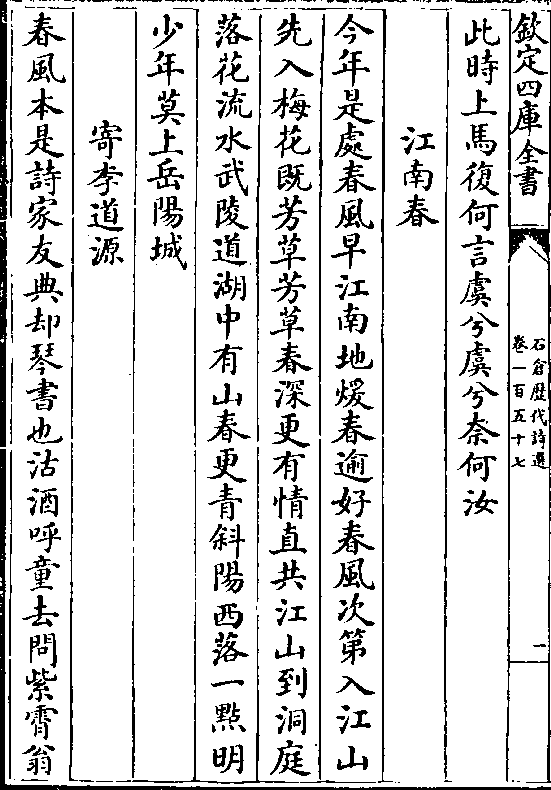 欽定四庫全書
石倉歴代詩選
卷一百五十七
一
此時上馬復何言虞兮虞兮柰何汝
江南春
今年是處春風早江南地煖春逾好春風次第入江山
先入梅花既芳草芳草春深更有情直共江山到洞庭
落花流水武陵道湖中有山春更青斜陽西落一點明
少年莫上岳陽城
寄李道源
春風本是詩家友典却琴書也沽酒呼童去問紫霄翁